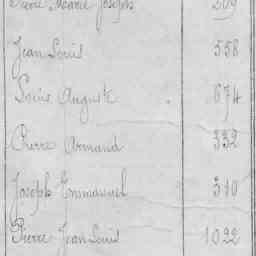 Pierre Marie Joseph 509
Jean Louis 558
Louis Auguste 674
Pierre Armand 332
Joseph Emmanuel 310
Pierre Jean Louis 1022